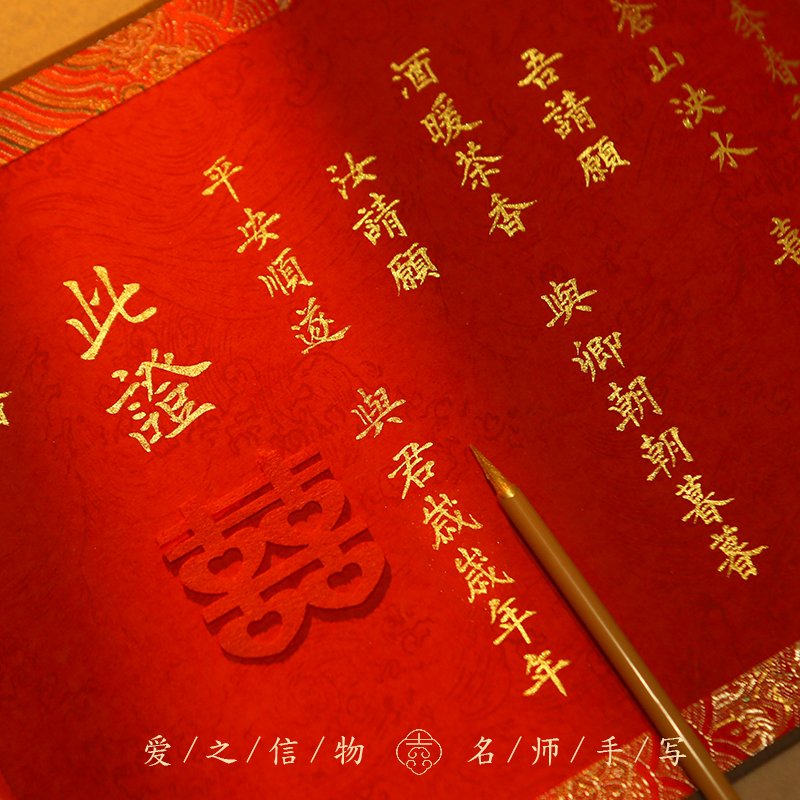 季春
蒼山泱水 喜
吾請願
酒暖茶香 與卿朝朝暮暮
汝請願
平安順遂 與君歲歲年年
此證
囍
爱/之/信/物 名/师/手/写